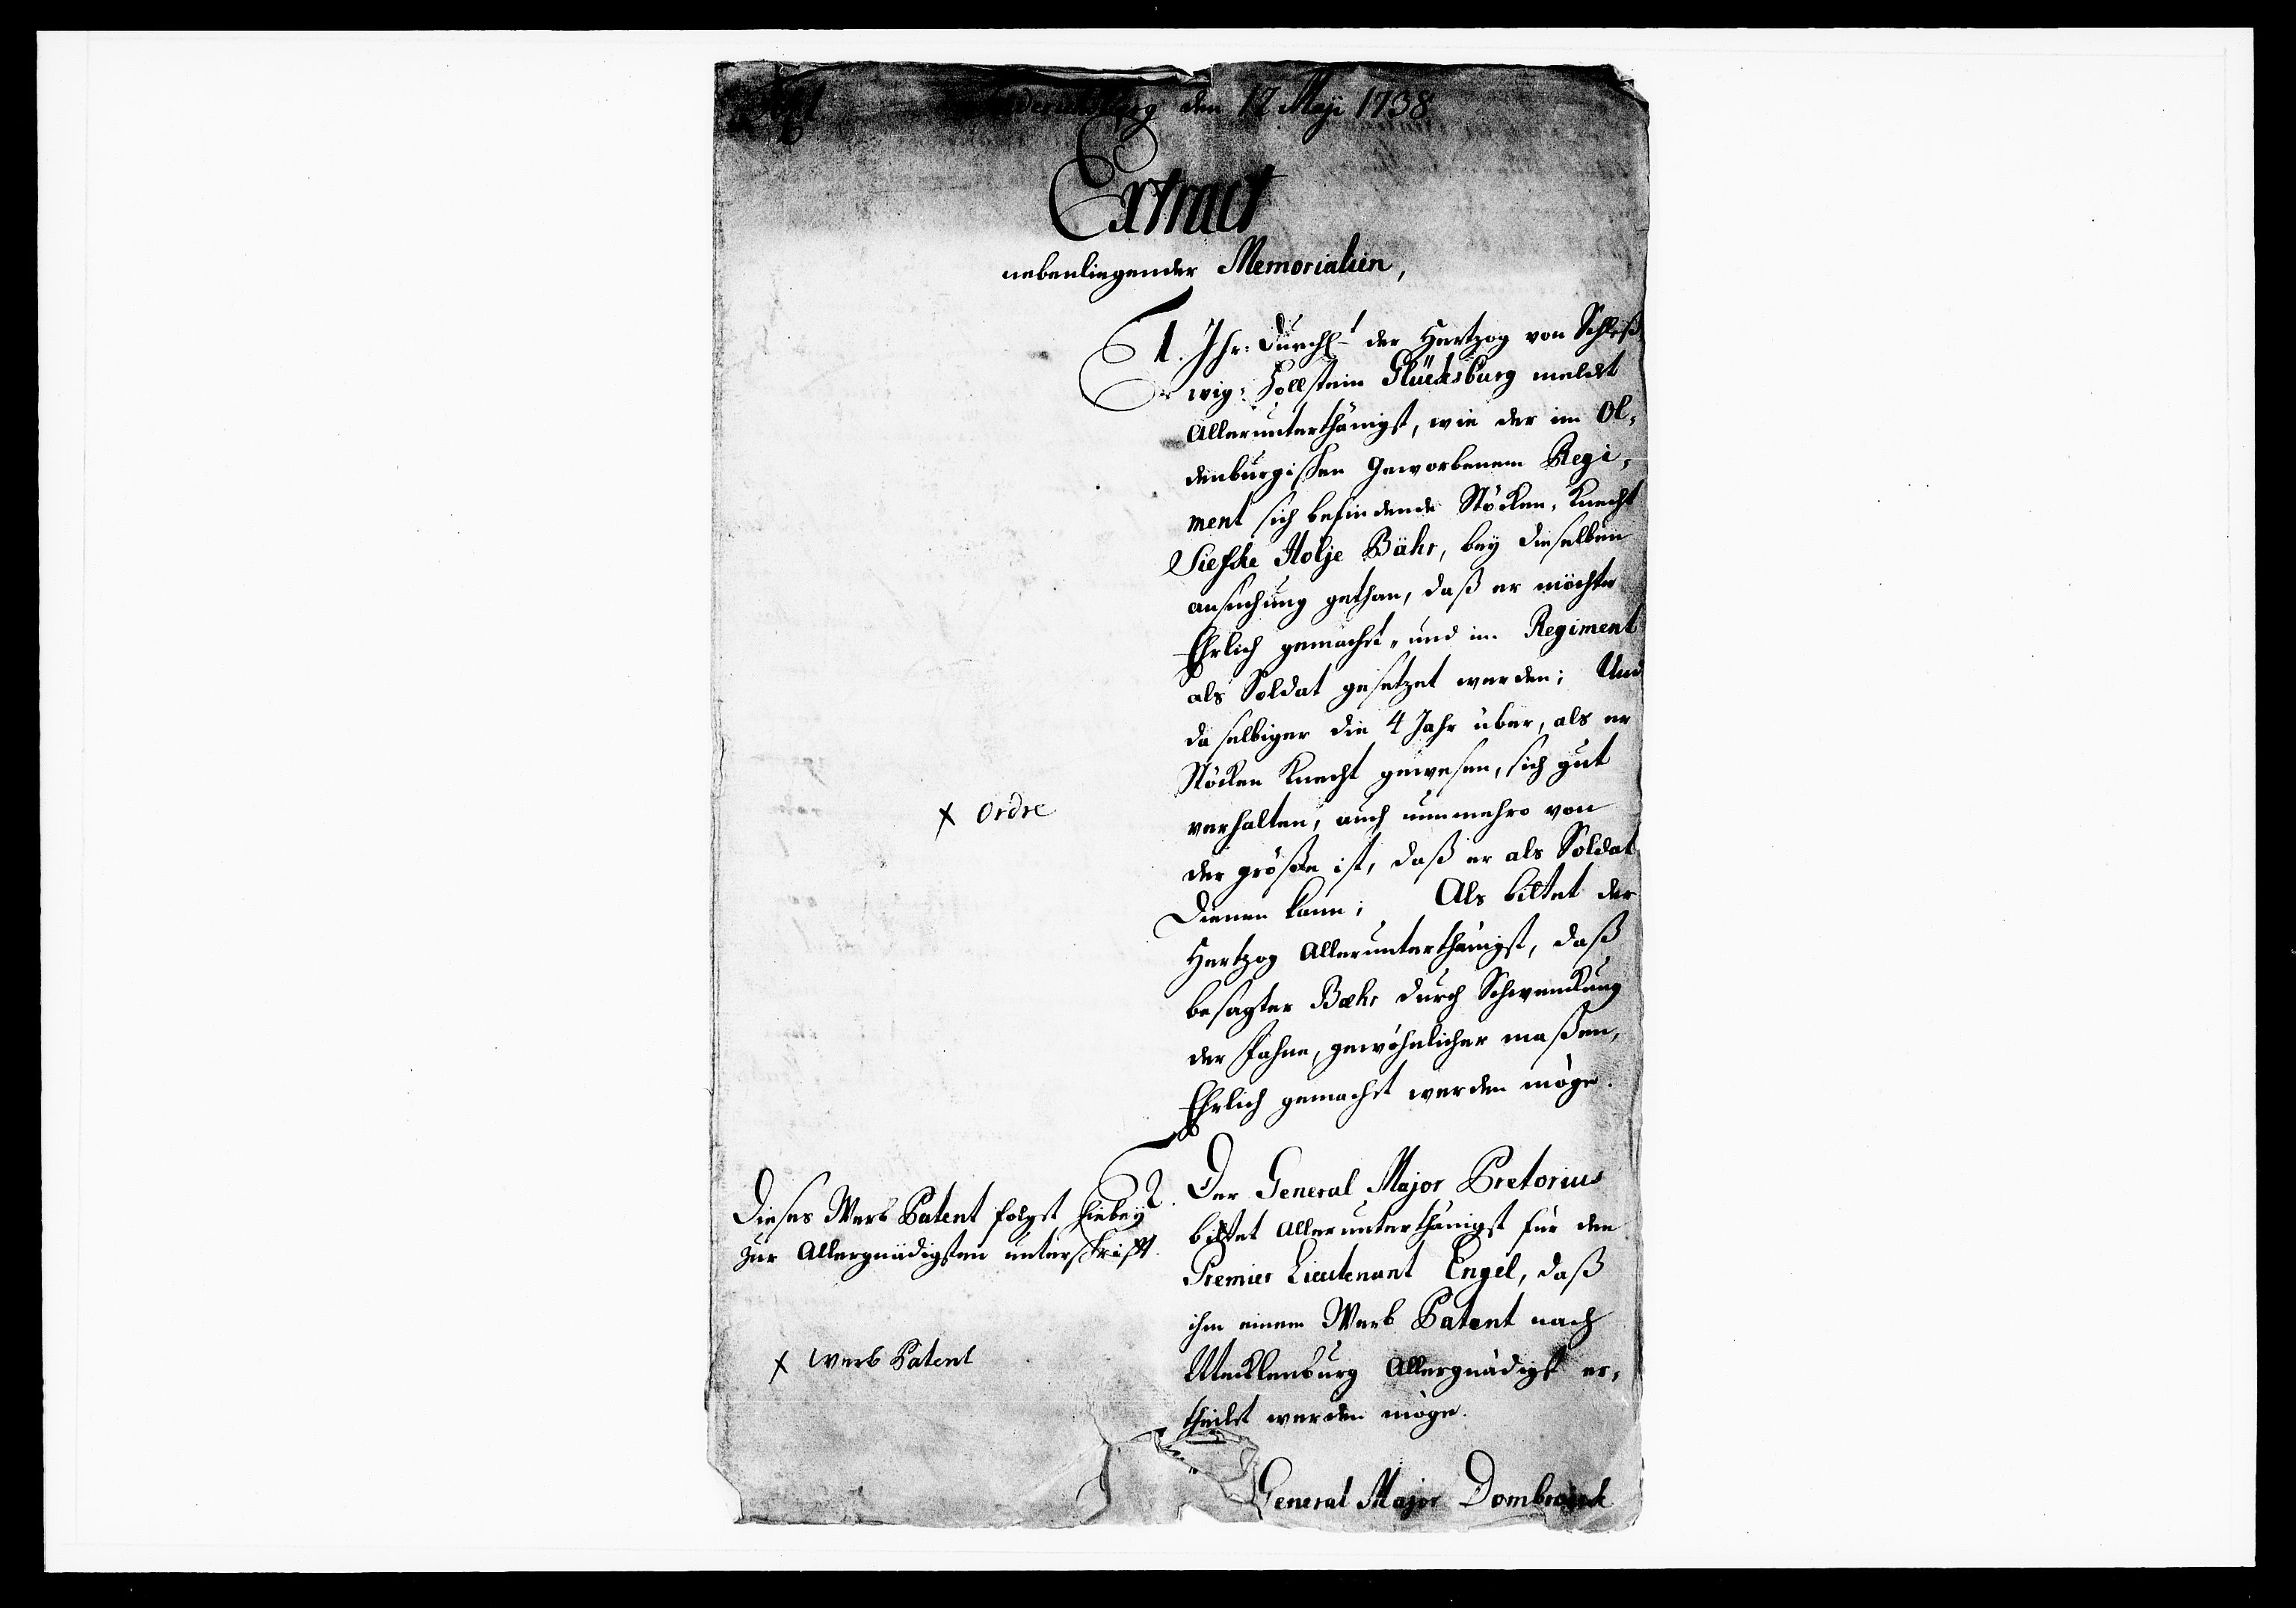 den 12 Maji 1738.
Extract
nebenliegender Memorialien,
1. Ihr: Durchl der Hertzog von Schleß-
wig-Hollstein Glücksburg meldet
Allerunterthänigst, wie der im Ol-
denburgischen Geworbenem Regi-
ment sich befindende Stöcken-Knecht
Siefke Holje Bähr, bey dieselben
ansuchung gethan, daß er möchte
Ehrlich gemacht- und im Regiment
als Soldat gesetzet werden; Und
da selbiger die 4 Jahr über, als er
Stöcken Knecht gewesen, sich gut
verhalten, auch nunmehro von
der größe ist, daß er als Soldat
Dienen kann; Als bittet der
Hertzog Allerunterthänigst, daß
besagter Bæhr durch Schwenckung
der Fahne, gewöhnlicher maßen,
Ehrlich gemacht werden möge.
x Ordre
2. Der General Major Pretorius
bittet Allerunterthänigst für den
Premier Lieutenant Engel, daß
ihm einem Werb Patent nach
Mecklenburg Allergnädigst er-
theilet werden möge.
Dieses Werb Patent folget hiebey
zur Allergnädigsten unterschrifft.
x Werb Patent
General Major